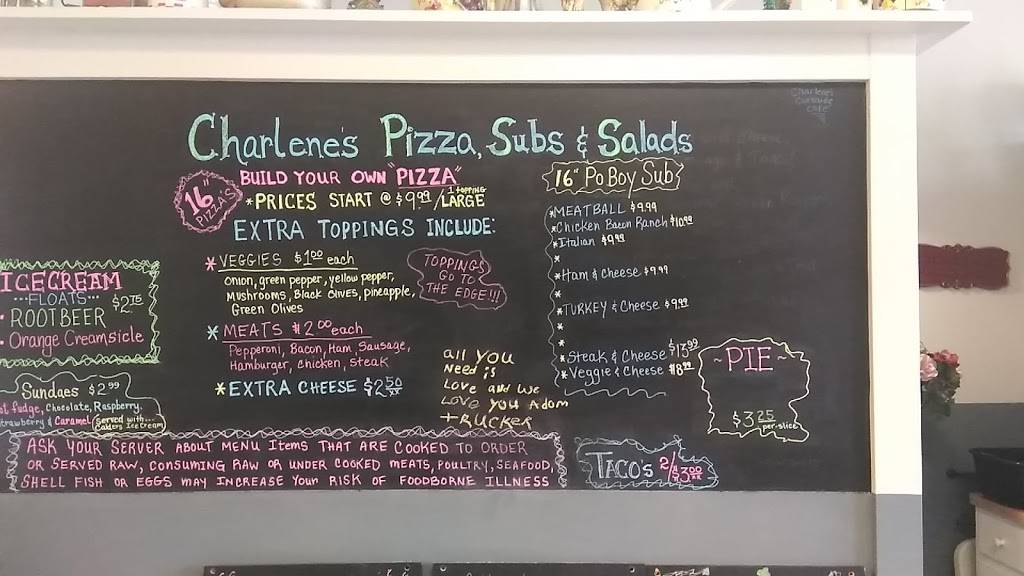 Charlene's
Curbside
Cafe
Charlene's Pizza, Subs & Salads
BUILD YOUR OWN "PIZZA"
16"
PIZZAS
*PRICES START @ $9.99/1 topping LARGE
EXTRA TOPPINGS INCLUDE:
*VEGGIES $1.00 each
Onion, green pepper, yellow pepper,
Mushrooms, Black Olives, pineapple,
Green Olives
*MEATS $2.00 each
Pepperoni, Bacon, Ham, Sausage,
Hamburger, chicken, steak
*EXTRA CHEESE $2.50
TOPPINGS
GO TO
THE EDGE!!!
all you
need is
Love and we
Love you Adam
trucker
16" Po Boy Sub
*MEATBALL $9.99
*Chicken Bacon Ranch $10.99
*Italian $9.99
*
*Ham & Cheese $9.99
*
*TURKEY & Cheese $9.99
*
*
*Steak & Cheese $13.99
*Veggie & Cheese $8.99
~PIE~
$3.25
per slice
TACO'S 2/$3.00
ICECREAM
...FLOATS... $2.75
• ROOTBEER
• Orange Creamsicle
Sundaes $2.99
ot fudge, Chocolate, Raspberry,
trawberry & Caramel
Served with
Ice cream
ASK YOUR SERVER ABOUT MENU Items THAT ARE COOKED TO ORDER
OR SERVED RAW, CONSUMING RAW OR UNDER COOKED MEATS, POULTRY, SEAFOOD,
SHELL FISH OR EGGS MAY INCREASE Your RISK OF FOODBORNE ILLNESS